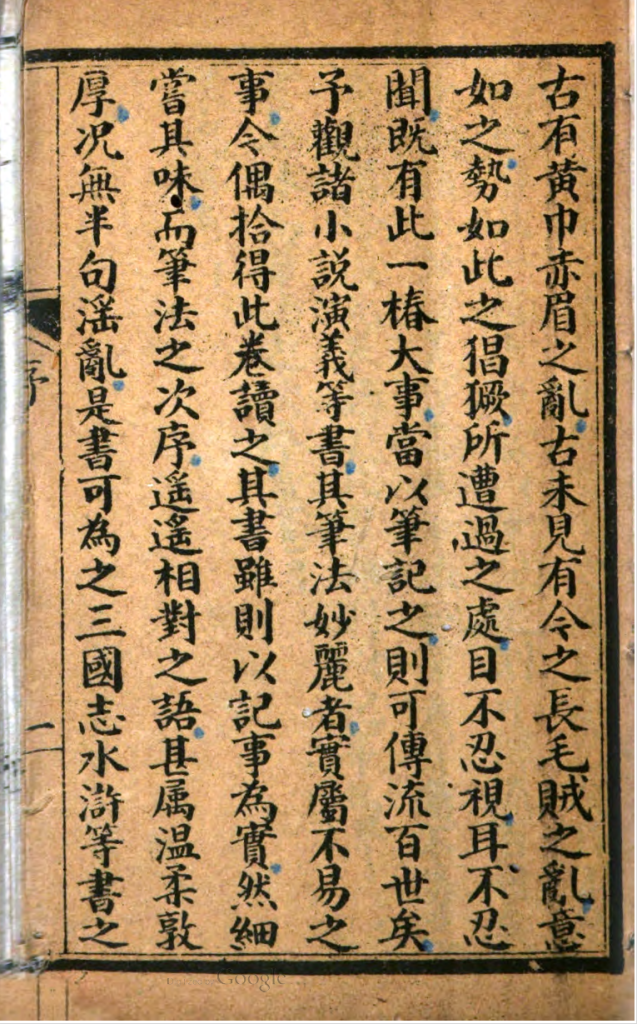 古有黄巾赤眉之亂古未見有今之長毛賊之亂意
如之勢如此之猖獗所遭過之處目不忍視耳不忍
聞既有此一樁大事當以筆記之則可傳流百世矣
予觀諸小說演義等書其筆法妙麗者實屬不易之
事今偶拾得此卷讀之其書雖則以記事為實然細
嘗其味而筆法之次序遥遥相對之語甚属温柔敦
厚况無半句滛亂是書可為之三國志水滸等書之
序
二
Google